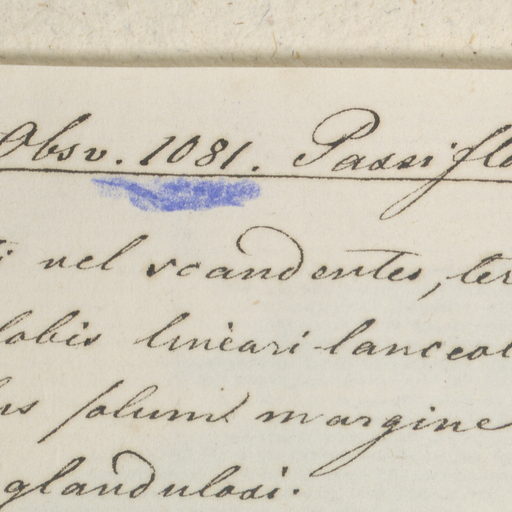 Obsv. 1081. Passiflo
i vel scandentes, ter
lobis lineari-lanceol
us solum margine
glandulosi.